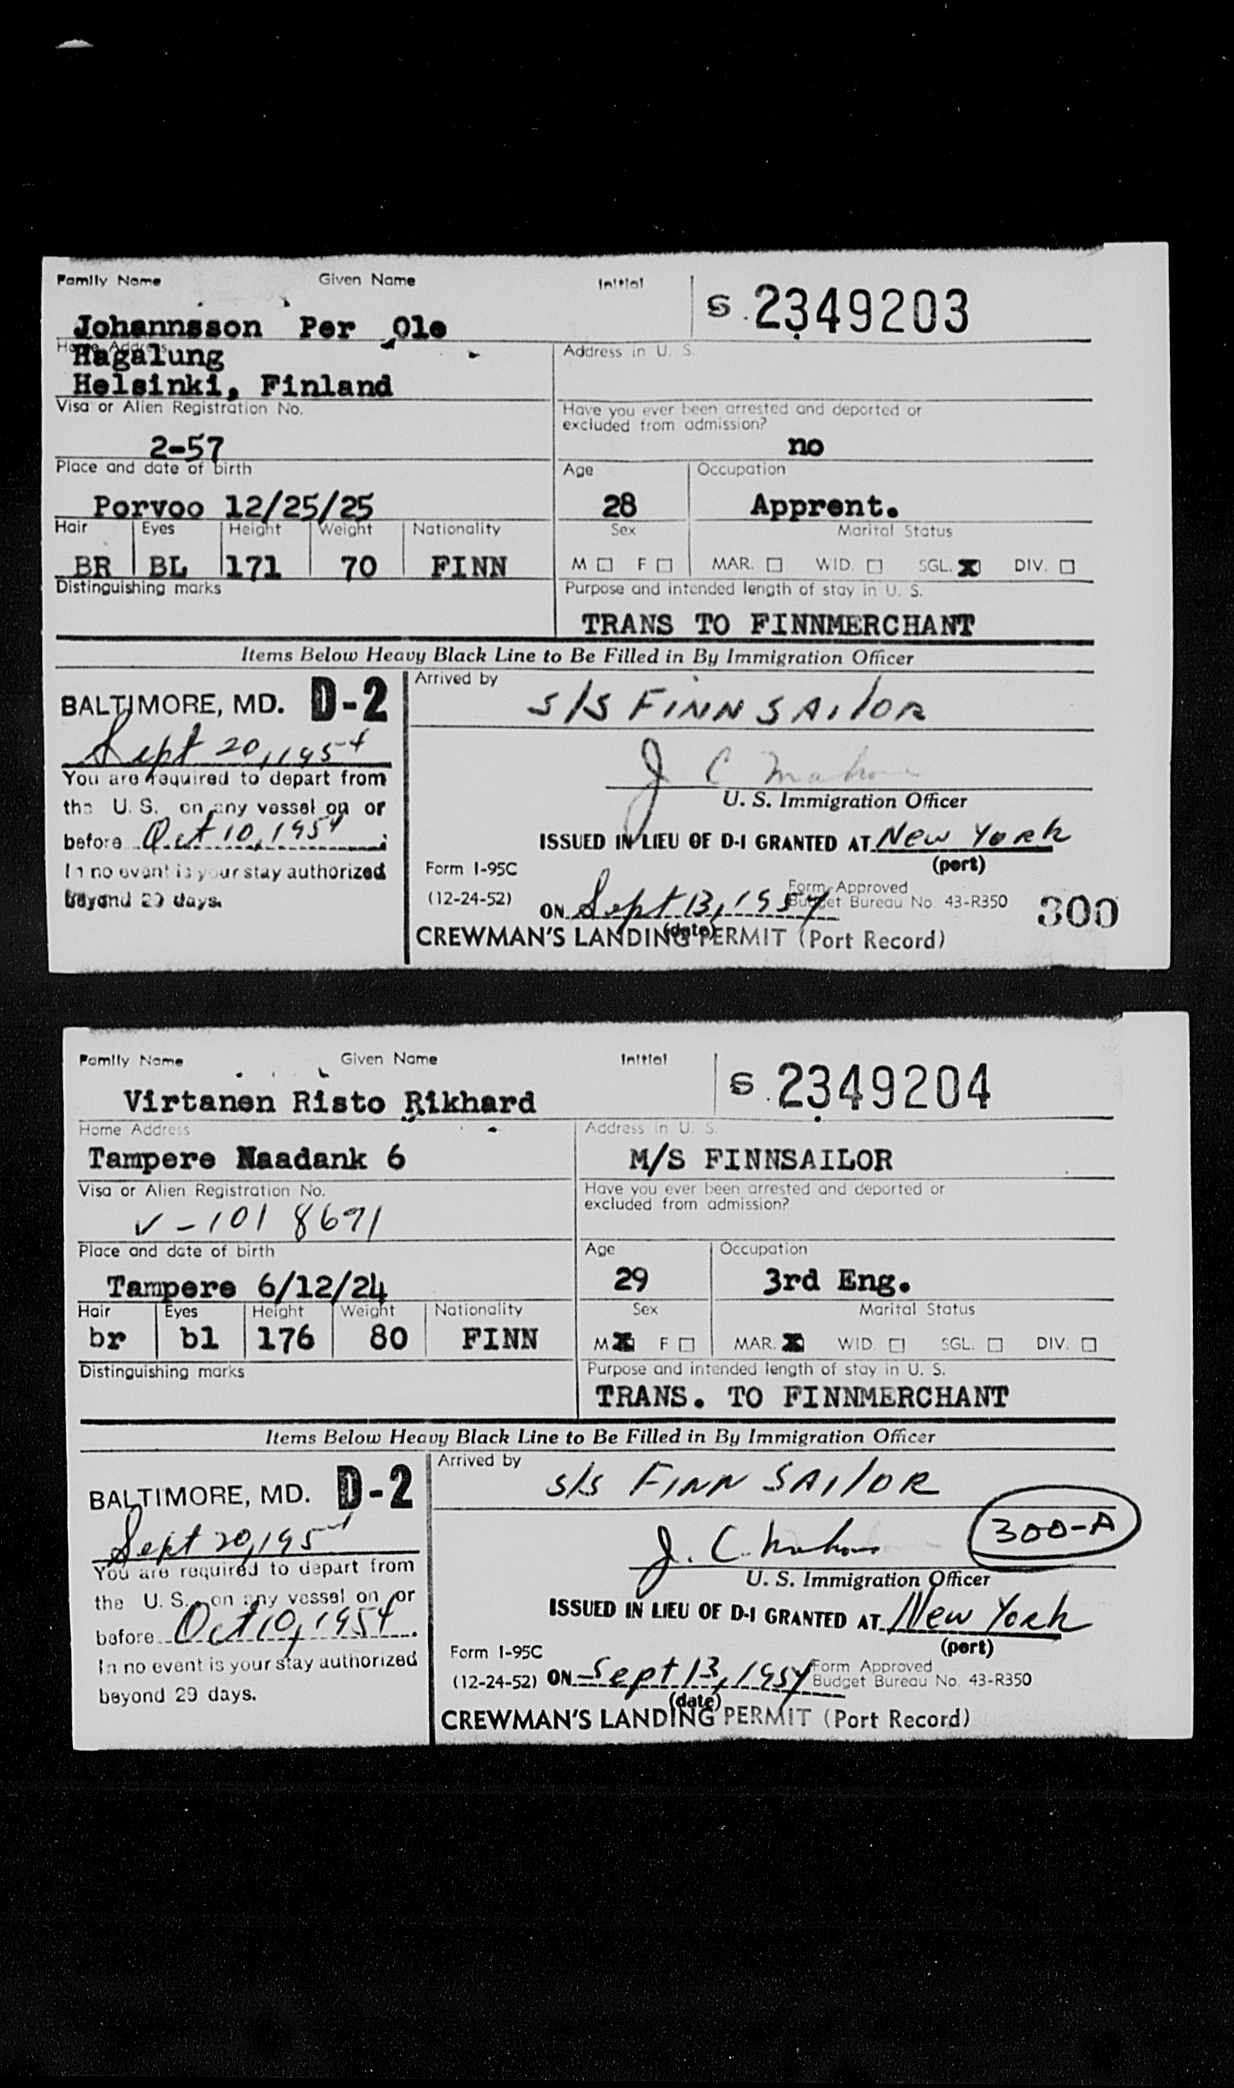 Family Name Given Name Initial
S.2349203
Johannsson Per Ole
Home Address
Hagalung
Helsinki, Finland
Address in U. S.
Visa or Alien Registration No.
2-57
Have you ever been arrested and deported or
excluded from admission?
no
Place and date of birth
Porvoo 12/25/25
Age
28
Occupation
Apprent.
Hair Eyes Height Weight Nationality
BR BL 171 70 FINN
Sex Marital Status
M F MAR. WID. SGL. X DIV.
Distinguishing marks
Purpose and intended length of stay in U. S.
TRANS TO FINNMERCHANT
Items Below Heavy Black Line to Be Filled in By Immigration Officer
BALTIMORE, MD. D-2
Sept 20, 1954
You are required to depart from
the U. S. on any vessel on or
before Oct 10, 1954
In no event is your stay authorized
beyond 29 days.
Arrived by
S/S FINNSAILOR
J C
U. S. Immigration Officer
ISSUED IN LIEU OF D-1 GRANTED AT New York
(port)
Form I-95C
(12-24-52)
ON Sept 13, 1954
(date)
Form Approved
Budget Bureau No. 43-R350
300
CREWMAN'S LANDING PERMIT (Port Record)
Family Name Given Name Initial
S.2349204
Virtanen Risto Rikhard
Home Address
Tampere Naadank 6
Address in U. S.
M/S FINNSAILOR
Visa or Alien Registration No.
V-1018691
Have you ever been arrested and deported or
excluded from admission?
Place and date of birth
Tampere 6/12/24
Age
29
Occupation
3rd Eng.
Hair Eyes Height Weight Nationality
br bl 176 80 FINN
Sex Marital Status
M X F MAR. X WID. SGL. DIV.
Distinguishing marks
Purpose and intended length of stay in U. S.
TRANS. TO FINNMERCHANT
Items Below Heavy Black Line to Be Filled in By Immigration Officer
BALTIMORE, MD. D-2
Sept 20, 1954
You are required to depart from
the U. S. on any vessel on or
before Oct 10, 1954
In no event is your stay authorized
beyond 29 days.
Arrived by
S/S FINNSAILOR
300-A
J. C.
U. S. Immigration Officer
ISSUED IN LIEU OF D-1 GRANTED AT New York
(port)
Form I-95C
(12-24-52)
ON Sept 13, 1954
(date)
Form Approved
Budget Bureau No. 43-R350
CREWMAN'S LANDING PERMIT (Port Record)